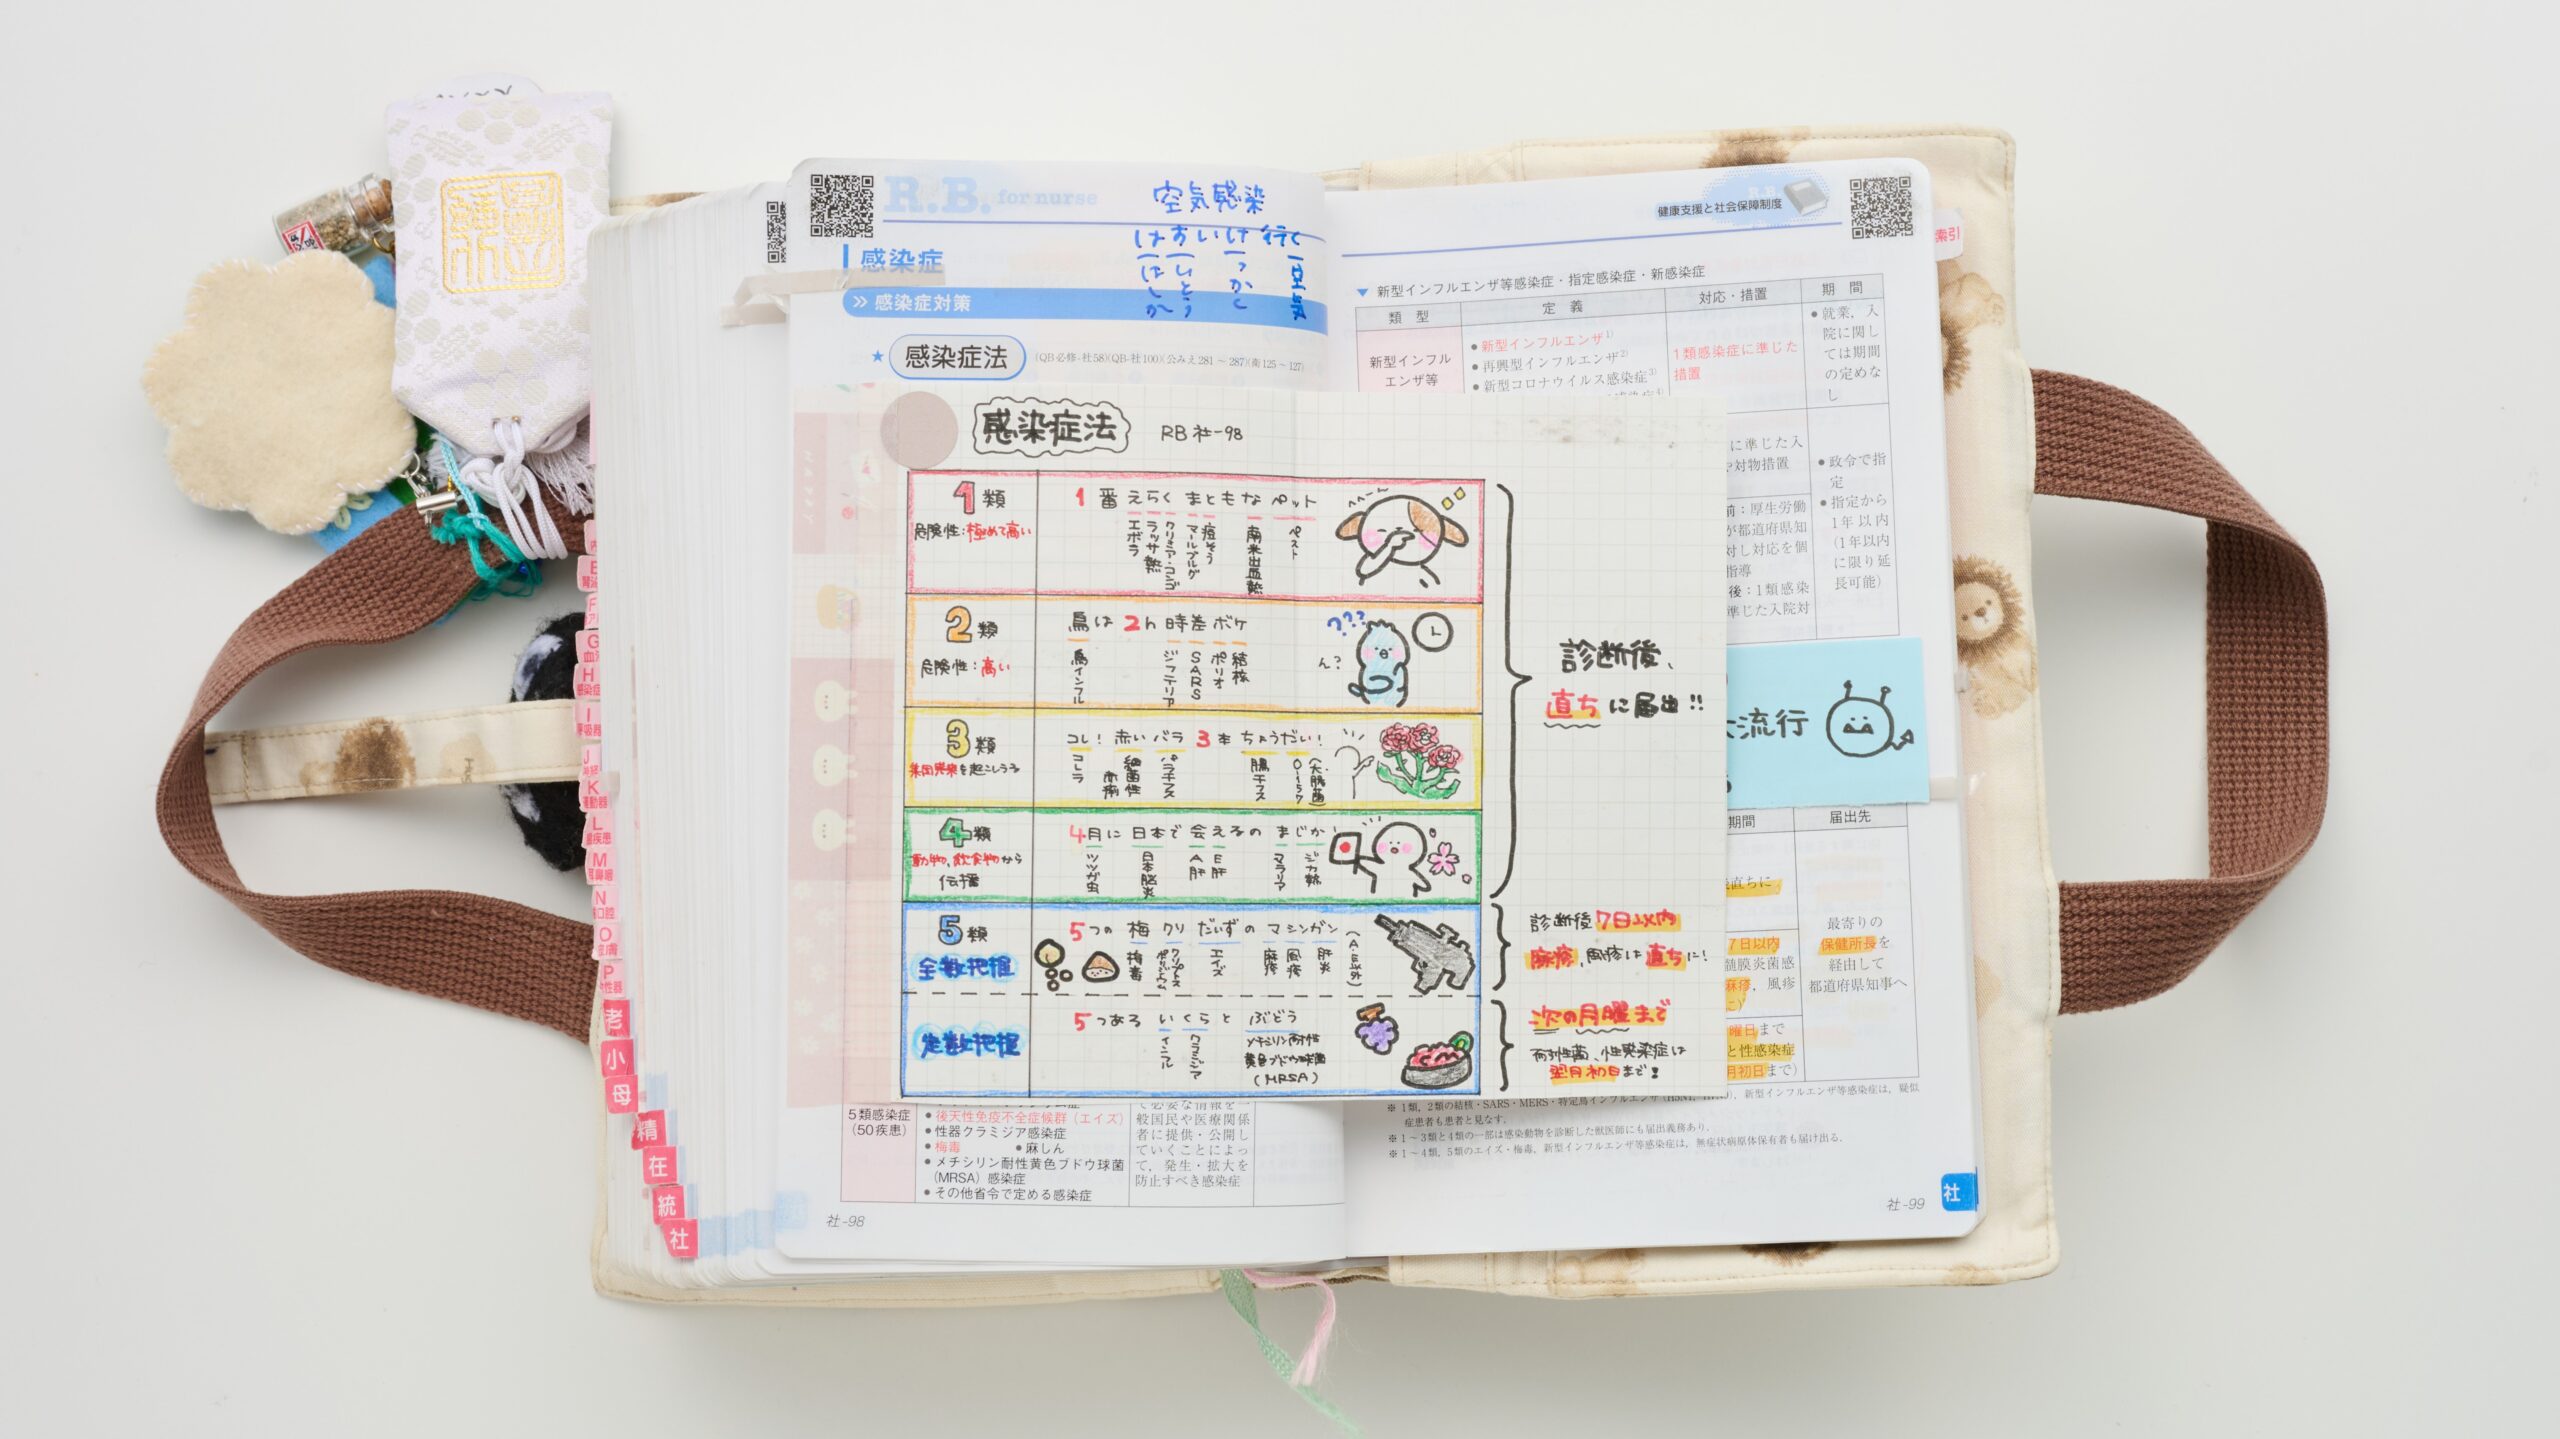 R.B. for nurse
空気感染
はすいけ行く
はしか
しとう
っかく
空気
感染症
感染症対策
★ 感染症法 (QB必修-社58)(QB-社100)(公みえ281～287)(南125～127)
感染症法 RB 社-98
1類
危険性:極めて高い
1番 えらく まともな ペット
エボラ
ラッサ熱
クリミア・コンゴ
マールブルグ
痘そう
南米出血熱
ペスト
2類
危険性:高い
鳥は 2h 時差ボケ
鳥インフル
ジフテリア
SARS
ポリオ
結核
???
ん?
3類
集団発生を起こしうる
コレ! 赤い バラ 3本 ちょうだい!
コレラ
細菌性
赤痢
パラチフス
腸チフス
O-157
(大腸菌)
4類
動物、飲食物から
伝播
4月に 日本で 会えるの まじか
ツツガ虫
日本脳炎
A肝
E肝
マラリア
ジカ熱
診断後、
直ちに届出!!
5類
全数把握
5つの 梅 クリ だいずの マシンガン
梅毒
エイズ
麻疹
風疹
肝炎
(A.E以外)
診断後7日以内
麻疹、風疹は直ちに!
定数把握
5つある いくらと ぶどう
インフル
クラミジア
メチシリン耐性
黄色ブドウ球菌
(MRSA)
次の月曜まで
耐性菌、性感染症は
翌月初日まで!
5類感染症
(50疾患)
●後天性免疫不全症候群(エイズ)
●性器クラミジア感染症
●梅毒 ●麻しん
●メチシリン耐性黄色ブドウ球菌
(MRSA)感染症
●その他省令で定める感染症
て必要な情報を一
般国民や医療関係
者に提供・公開し
ていくことによっ
て，発生・拡大を
防止すべき感染症
社-98
健康支援と社会保障制度
索引
▼ 新型インフルエンザ等感染症・指定感染症・新感染症
類 型 定 義 対応・措置 期 間
新型インフル
エンザ等
●新型インフルエンザ1)
●再興型インフルエンザ2)
●新型コロナウイルス感染症3)
1類感染症に準じた
措置
●就業，入
院に関し
ては期間
の定めな
し
に準じた入
や対物措置
●政令で指
定
前：厚生労働
が都道府県知
対し対応を個
指導
後：1類感染
準じた入院対
●指定から
1年以内
(1年以内
に限り延
長可能)
大流行
期間 届出先
直ちに
7日以内
髄膜炎菌感
麻疹，風疹
に)
曜日まで
と性感染症
月初日まで)
最寄りの
保健所長を
経由して
都道府県知事へ
症患者も患者と見なす．
※1～3類と4類の一部は感染動物を診断した獣医師にも届出義務あり．
※1～4類，5類のエイズ・梅毒，新型インフルエンザ等感染症は，無症状病原体保有者も届け出る．
社
社-99
G
H
感染症
I
呼吸器
J
K
運動器
L
M
N
O
P
老
小
母
精
在
統
社